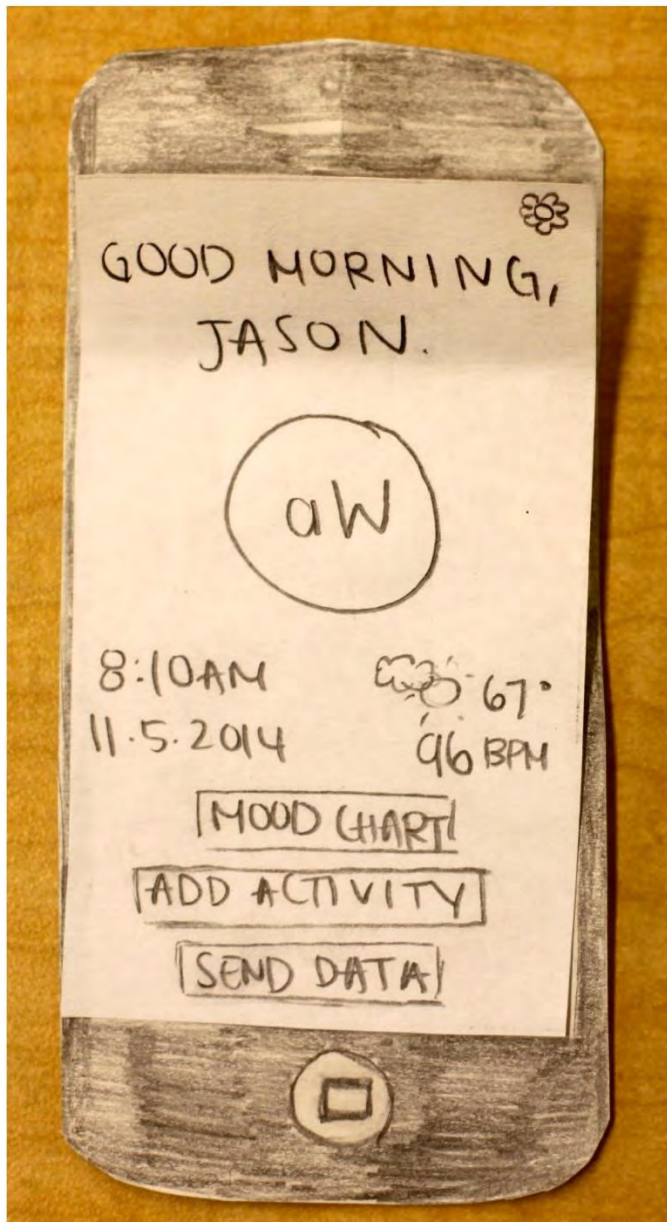 GOOD MORNING,
JASON.
aW
8:10AM 67°
11.5.2014 96 BPM
MOOD CHART
ADD ACTIVITY
SEND DATA